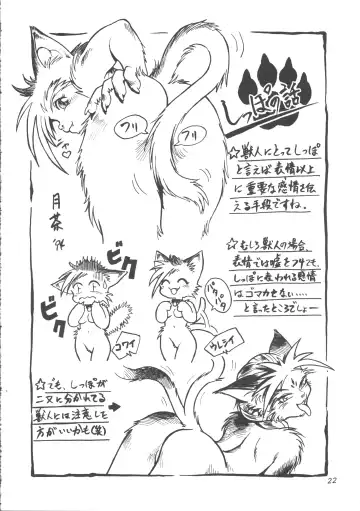 しっぽの話
フリ
フリ
☆獣人にとってしっぽ
と言えば表情以上
に重要な感情を伝
える手段ですね。
月茶
'94
☆むしろ獣人の場合、
表情では嘘をつけても、
しっぽに表われる感情
はゴマかせない‥‥
と言ったところでしょー
ビク
ビク
コワイ
パタ
パタ
ウレシイ
☆でも、しっぽが
二又に分かれてる
獣人には注意した
方がいいかも(笑)
22